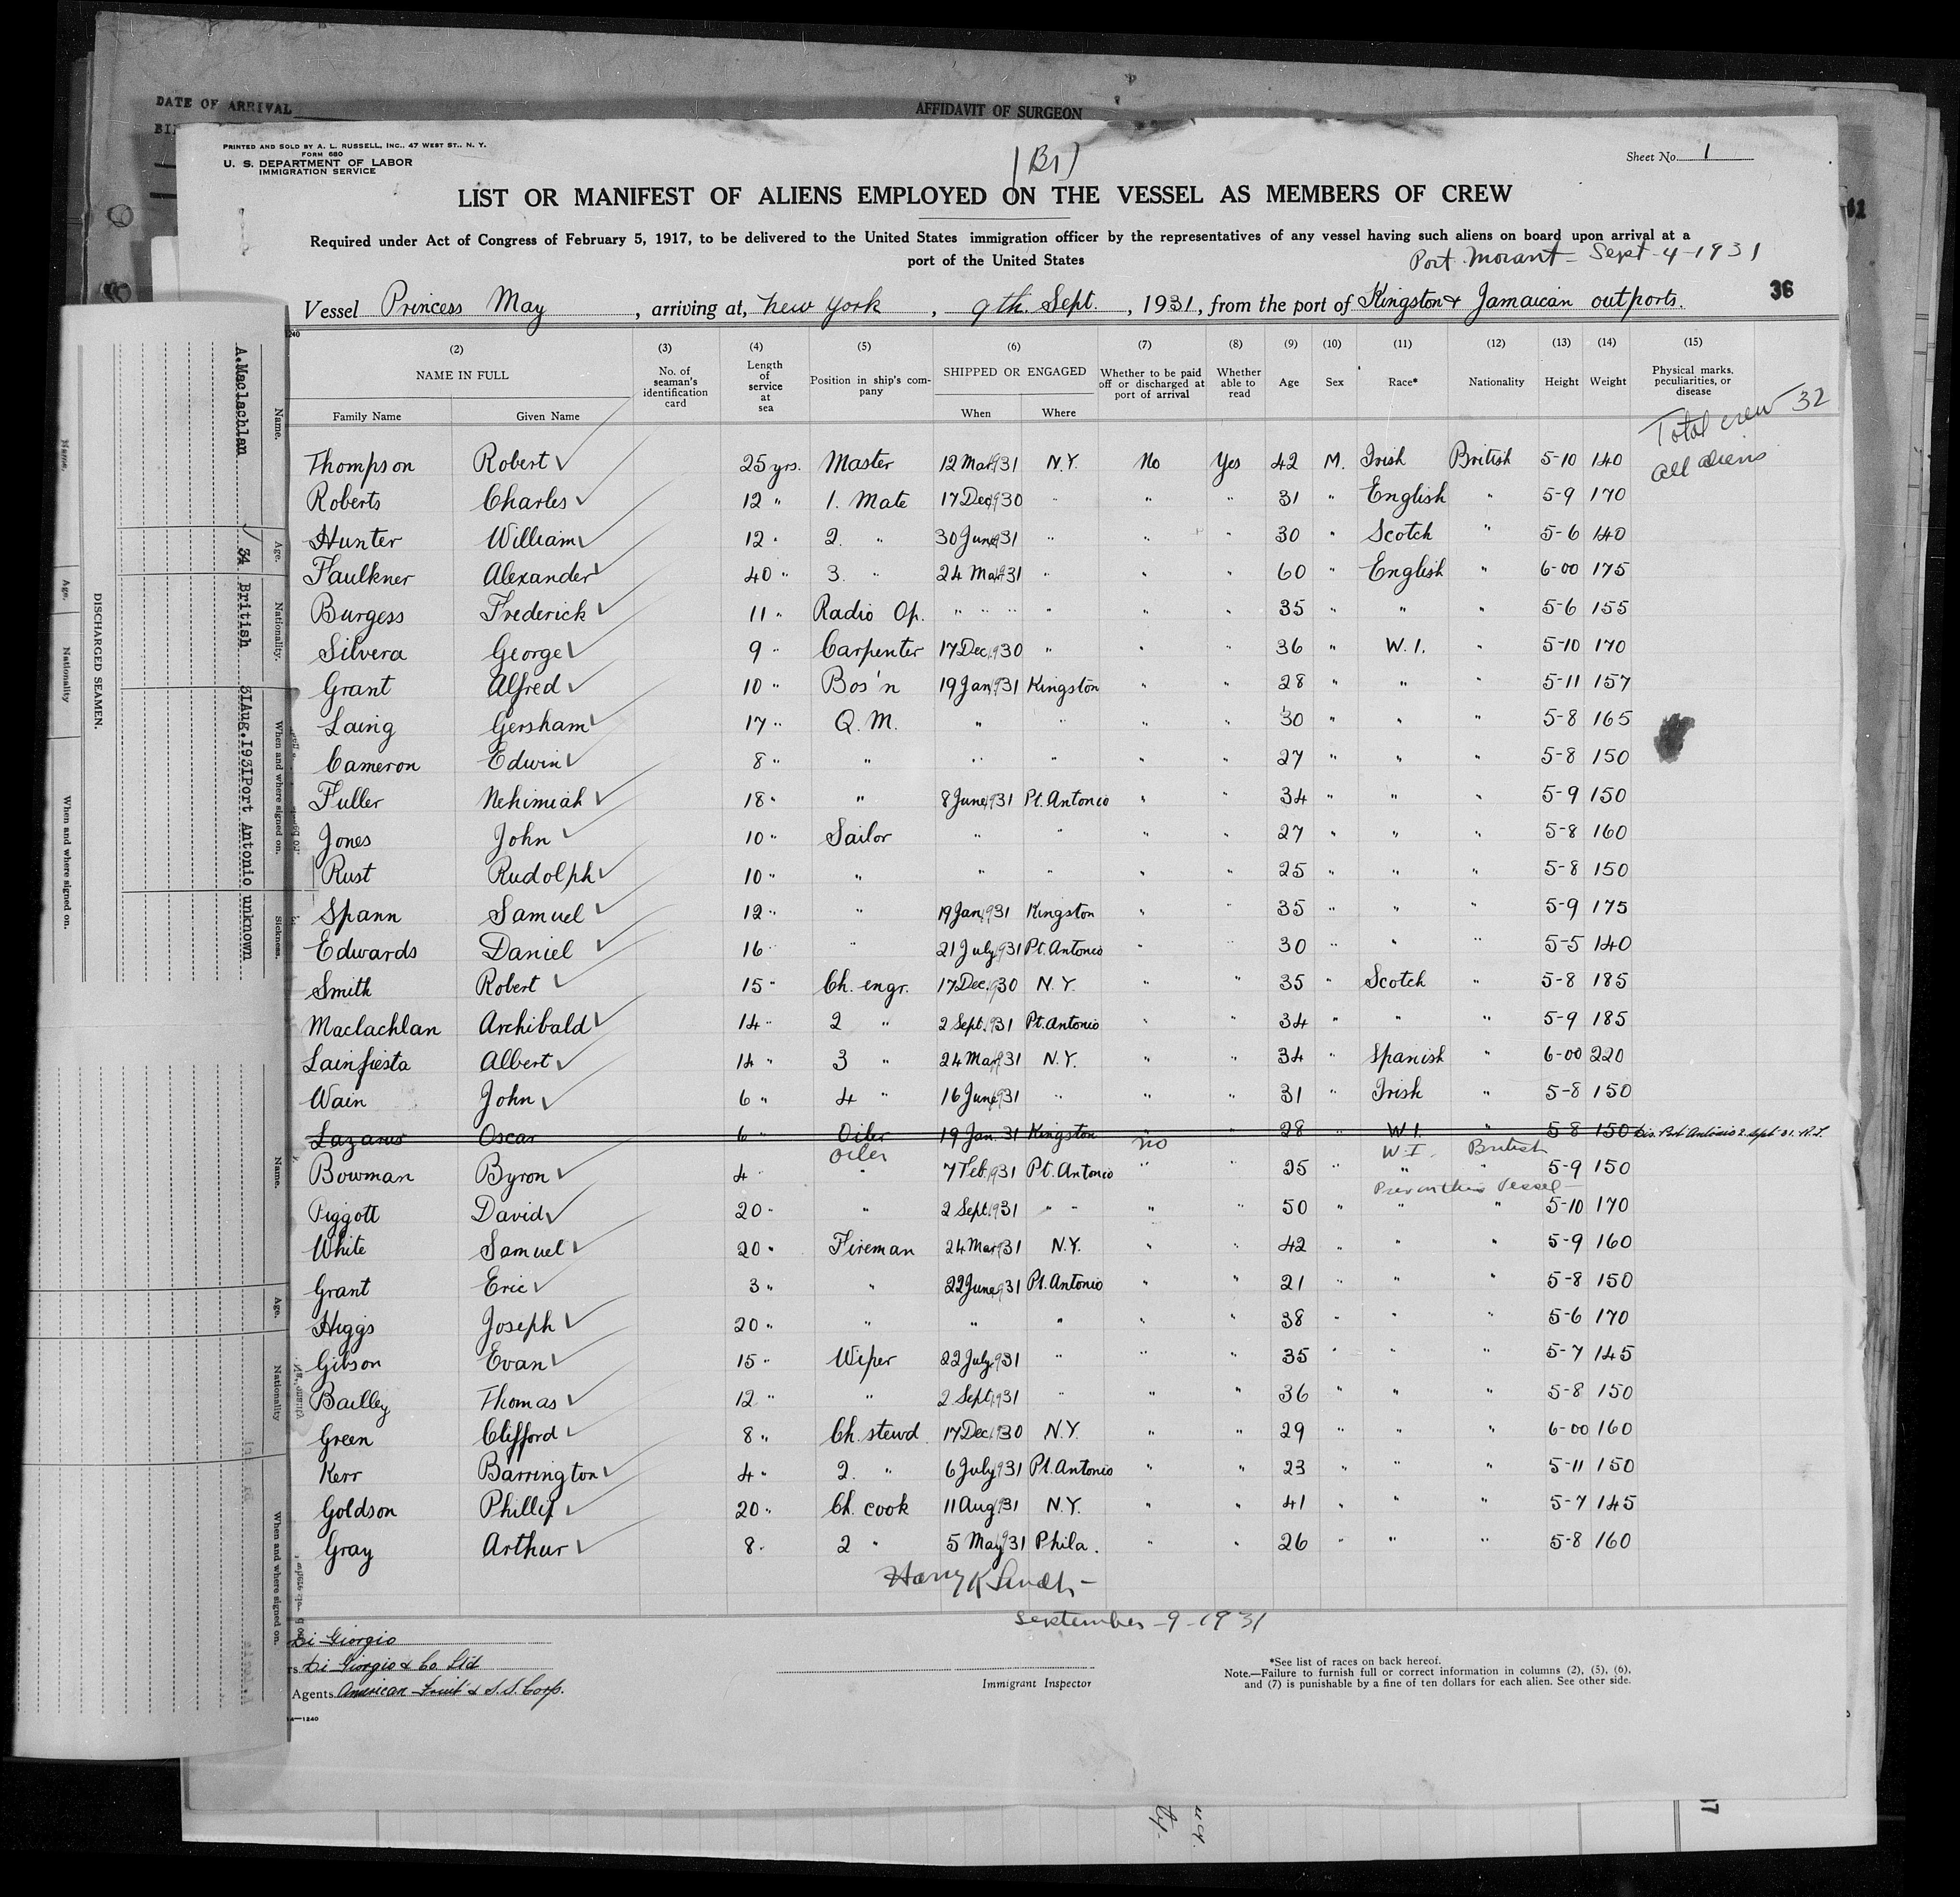 DATE OF ARRIVAL
AFFIDAVIT OF SURGEON
PRINTED AND SOLD BY A. L. RUSSELL, INC., 47 WEST ST., N. Y.
FORM 680
U. S. DEPARTMENT OF LABOR
IMMIGRATION SERVICE
(Br)
Sheet No. 1
LIST OR MANIFEST OF ALIENS EMPLOYED ON THE VESSEL AS MEMBERS OF CREW
Required under Act of Congress of February 5, 1917, to be delivered to the United States immigration officer by the representatives of any vessel having such aliens on board upon arrival at a
port of the United States
Port Morant - Sept - 4 - 1931
Vessel Princess May, arriving at, New York, 9th. Sept., 1931, from the port of Kingston & Jamaican outports.
36
(2) (3) (4) (5) (6) (7) (8) (9) (10) (11) (12) (13) (14) (15)
NAME IN FULL No. of seaman's identification card Length of service at sea Position in ship's company SHIPPED OR ENGAGED Whether to be paid off or discharged at port of arrival Whether able to read Age Sex Race* Nationality Height Weight Physical marks, peculiarities, or disease
Family Name Given Name When Where
Total crew 32
all aliens
Thompson Robert ✓ 25 yrs. Master 12 Mar 1931 N.Y. No Yes 42 M. Irish British 5-10 140
Roberts Charles ✓ 12 " 1. Mate 17 Dec 1930 " " " 31 " English " 5-9 170
Hunter William ✓ 12 " 2. " 30 June 1931 " " " 30 " Scotch " 5-6 140
Faulkner Alexander ✓ 40 " 3. " 24 Mar 1931 " " " 60 " English " 6-00 175
Burgess Frederick ✓ 11 " Radio Op. " " " " " " 35 " " " 5-6 155
Silvera George ✓ 9 " Carpenter 17 Dec. 1930 " " " 36 " W. I. " 5-10 170
Grant Alfred ✓ 10 " Bos'n 19 Jan 1931 Kingston " " 28 " " " 5-11 157
Laing Gersham ✓ 17 " Q. M. " " " " 30 " " " 5-8 165
Cameron Edwin ✓ 8 " " " " " " 27 " " " 5-8 150
Fuller Nehimiah ✓ 18 " " 8 June 1931 Pt. Antonio " " 34 " " " 5-9 150
Jones John ✓ 10 " Sailor " " " " 27 " " " 5-8 160
Rust Rudolph ✓ 10 " " " " " " 25 " " " 5-8 150
Spann Samuel ✓ 12 " " 19 Jan 1931 Kingston " " 35 " " " 5-9 175
Edwards Daniel ✓ 16 " " 21 July 1931 Pt. Antonio " " 30 " " " 5-5 140
Smith Robert ✓ 15 " Ch. engr. 17 Dec. 1930 N.Y. " " 35 " Scotch " 5-8 185
Maclachlan Archibald ✓ 14 " 2 " 2 Sept. 1931 Pt. Antonio " " 34 " " " 5-9 185
Lainfiesta Albert ✓ 14 " 3 " 24 Mar 1931 N.Y. " " 34 " Spanish " 6-00 220
Wain John ✓ 6 " 4 " 16 June 1931 " " " 31 " Irish " 5-8 150
Lazarus Oscar 6 " Oiler 19 Jan. 31 Kingston 28 " W I. " 5 8 150 Dis. Port Antonio 2. Sept 31. R.T.
Oiler no W. I. British
Bowman Byron ✓ 4 " " 7 Feb. 1931 Pt. Antonio " " 25 " " " 5-9 150
Prev on this Vessel
Piggott David ✓ 20 " " 2 Sept. 1931 " " " " 50 " " " 5-10 170
White Samuel ✓ 20 " Fireman 24 Mar 1931 N.Y. " " 42 " " " 5-9 160
Grant Eric ✓ 3 " " 22 June 1931 Pt. Antonio " " 21 " " " 5-8 150
Higgs Joseph ✓ 20 " " " " " " 38 " " " 5-6 170
Gibson Evan ✓ 15 " Wiper 22 July 1931 " " " 35 " " " 5-7 145
Bailley Thomas ✓ 12 " " 2 Sept 1931 " " " 36 " " " 5-8 150
Green Clifford ✓ 8 " Ch. stewd. 17 Dec. 1930 N.Y. " " 29 " " " 6-00 160
Kerr Barrington ✓ 4 " 2. " 6 July 1931 Pt. Antonio " " 23 " " " 5-11 150
Goldson Phillip ✓ 20 " Ch. cook 11 Aug. 31 N.Y. " " 41 " " " 5-7 145
Gray Arthur ✓ 8 " 2 " 5 May 1931 Phila. " " 26 " " " 5-8 160
September - 9 - 1931
Di Giorgio
Di Giorgio & Co. Ltd
Agents American Fruit & S.S. Corp.
Immigrant Inspector
*See list of races on back hereof.
Note.—Failure to furnish full or correct information in columns (2), (5), (6),
and (7) is punishable by a fine of ten dollars for each alien. See other side.
14—1240
DISCHARGED SEAMEN.
Name. Age. Nationality. When and where signed on. Sickness.
A.Maclachlan 34 British 31Aug.1931Port Antonio unknown
Name. Age. Nationality When and where signed on.
Name. Age. Nationality When and where signed on.